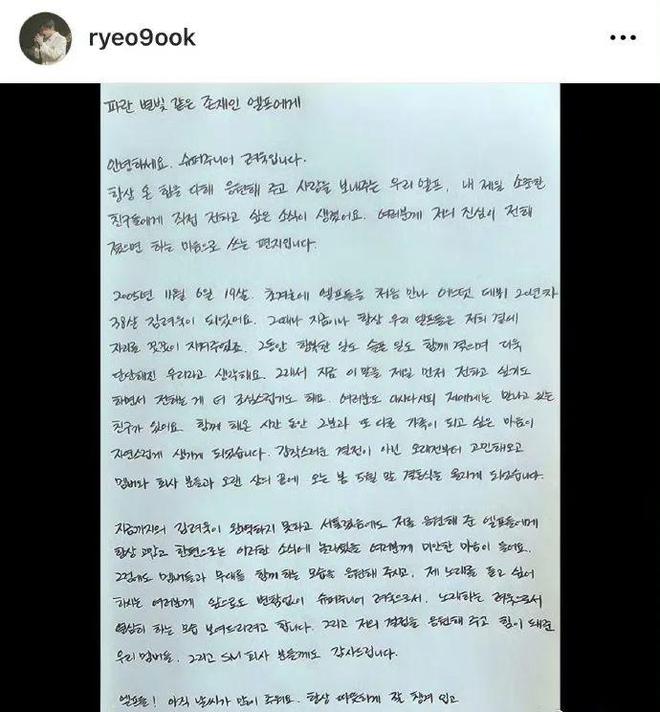 ryeo9ook
파란 별빛 같은 존재인 엘프에게
안녕하세요. 슈퍼주니어 려욱입니다.
항상 온 힘을 다해 응원해 주고 사랑을 보내주는 우리 엘프, 내 제일 소중한
친구들에게 직접 전하고 싶은 소식이 생겼어요. 여러분께 저의 진심이 전해
졌으면 하는 마음으로 쓰는 편지입니다.
2005년 11월 6일 19살. 초겨울에 엘프들을 처음 만나 어느덧 데뷔 20년차
38살 김려욱이 되었어요. 그때나 지금이나 항상 우리 엘프들은 저의 곁에
자리를 꿋꿋이 지켜주었죠. 그동안 행복한 일도 슬픈 일도 함께 겪으며 더욱
단단해진 우리라고 생각해요. 그래서 지금 이 말을 제일 먼저 전하고 싶기도
하면서 전하는 게 더 조심스럽기도 해요. 여러분도 아시다시피 저에게는 만나고 있는
친구가 있어요. 함께 해온 시간 동안 그분과 또 다른 가족이 되고 싶은 마음이
자연스럽게 생기게 되었습니다. 갑작스러운 결정이 아닌 오래전부터 고민해오고
멤버와 회사 분들과 오랜 상의 끝에 오는 봄 5월 말 결혼식을 올리게 되었습니다.
지금까지의 김려욱이 완벽하지 못하고 서툴렀음에도 저를 응원해 준 엘프들에게
항상 고맙고 한편으로는 이러한 소식에 놀라있을 여러분께 미안한 마음이 들어요.
그럼에도 멤버들과 무대를 함께 하는 모습을 응원해 주시고, 제 노래를 듣고 싶어
하시는 여러분께 앞으로도 변함없이 슈퍼주니어 려욱으로서, 노래하는 려욱으로서
열심히 하는 모습 보여드리려고 합니다. 그리고 저의 결정을 응원해 주고 힘이 돼준
우리 멤버들, 그리고 SM 회사 분들께도 감사드립니다.
엘프들! 아직 날씨가 많이 추워요. 항상 따뜻하게 잘 챙겨 입고